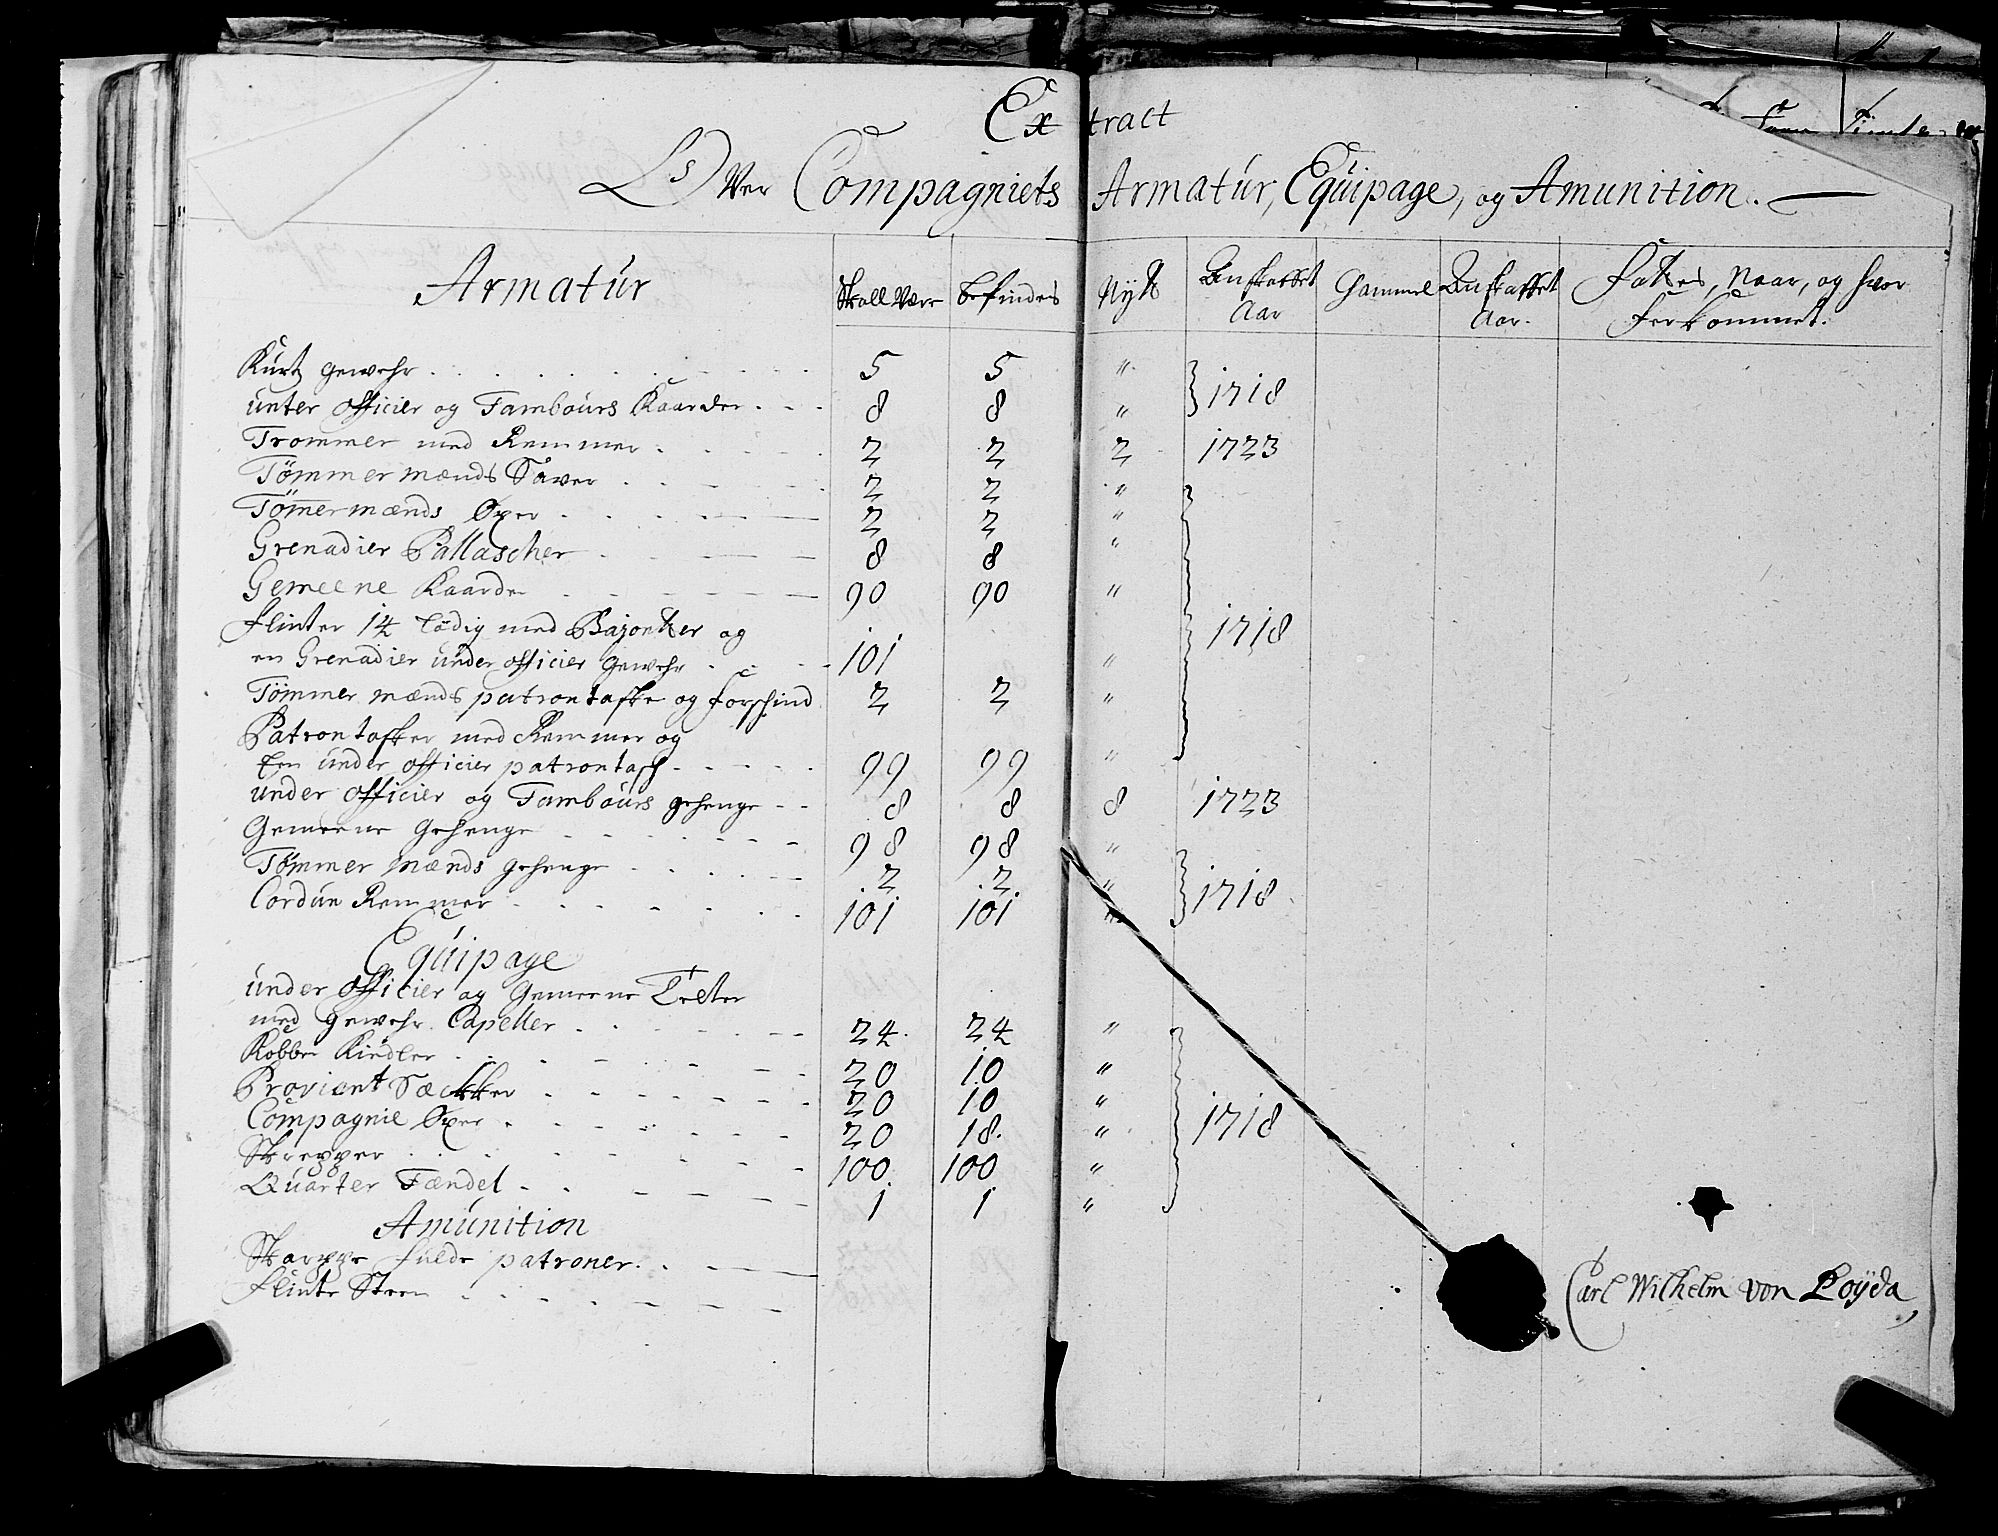 Extract
Over Compagniets Armatúr, Eqúipage, og Amunition.
Armatúr | Skall være | befindes | Nytt | Anskaffet Aar | Gammel | Anskaffet Aar. | Fattes, Naar, og hvor forkommet.
Kúrtz gewehr | 5 | 5 | " | 1718
únter officier og Tamboúrs Kaarder | 8 | 8 | "
Trommer med Remmer | 2 | 2 | 2 | 1723
Tömmermænds Saver | 2 | 2 | " | 1718
Tömermænds Öxer | 2 | 2 | "
Grenadier Pallascher | 8 | 8 | "
Gemeene Kaarder | 90 | 90 | "
Flinter 1¼ lödig med Bajonetter og
en Grenadier únder officier gewehr | 101 | "
Tömmermænds patrontaske og Forschind | 2 | 2 | "
Patrontasker med Remmer og
Een únder officier patrontasch | 99 | 99 | "
únder officier og Tamboúrs gehenge | 8 | 8 | 8 | 1723
Gemeene gehenge | 98 | 98 | " | 1718
Tømmer mænds gehenge | 2 | 2 | "
Cordún Remmer | 101 | 101 | "
Eqúipage
únder officier og Gemeene Telter
med gewehr Capeller | 24 | 24 | " | 1718
Kobber Kiedler | 20 | 10 | "
Provient Sækker | 20 | 10 | "
Compagnie Öxer | 20 | 18 | "
Skrepper | 100 | 100 | "
Qúarter Fændel | 1 | 1 | "
Amúnition
Skarppe fulde patroner
Flinte Steen
Carl Wilhelm von Loÿda